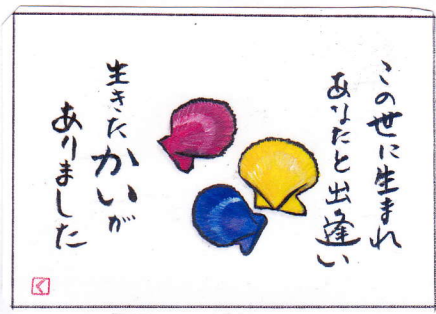 この世に生まれ
あなたと出逢い
生きたかいが
ありました
く